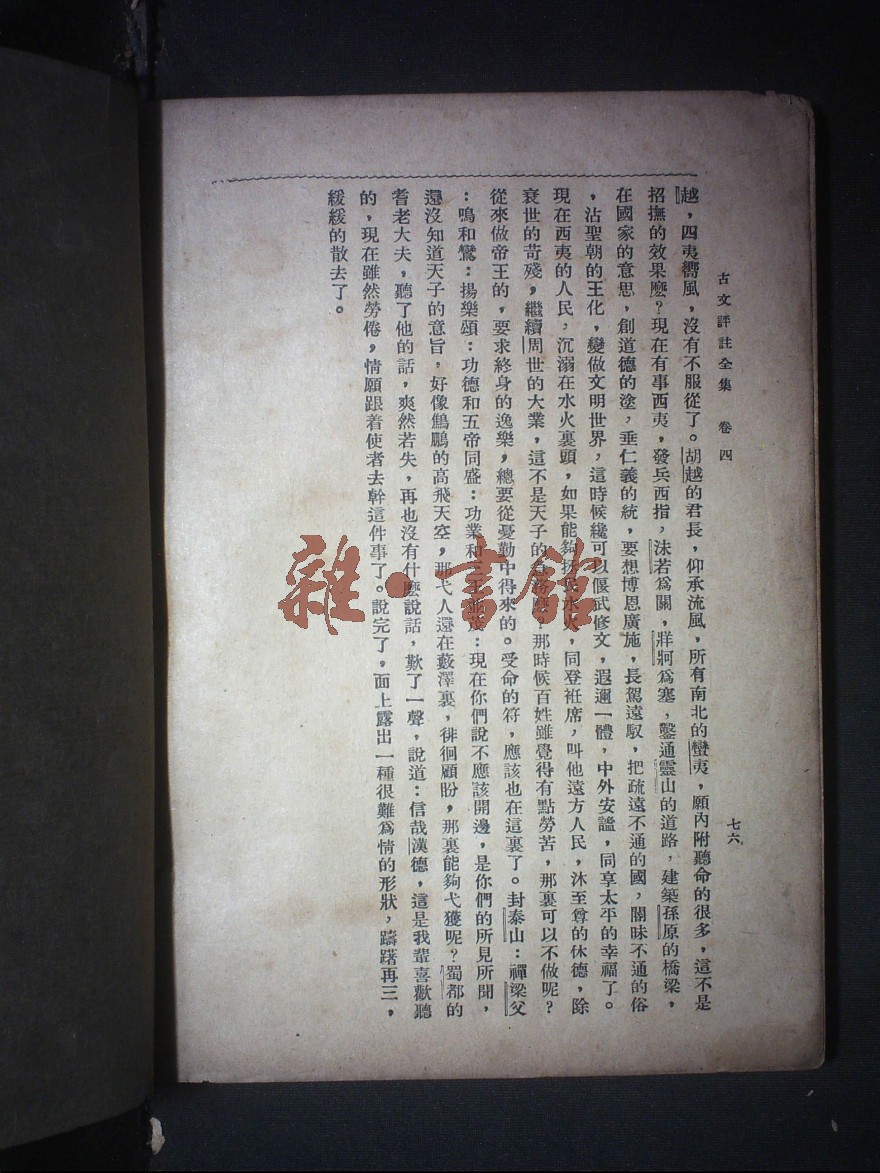 古文評註全集 卷四 七六
越，四夷嚮風，沒有不服從了。胡越的君長，仰承流風，所有南北的蠻夷，願內附聽命的很多，這不是
招撫的效果麼？現在有事西夷，發兵西指，沬若爲關，牂牁爲塞，鑿通靈山的道路，建築孫原的橋梁，
在國家的意思，創道德的塗，垂仁義的統，要想博恩廣施，長駕遠馭，把疏遠不通的國，闇昧不通的俗
，沾聖朝的王化，變做文明世界，這時候纔可以偃武修文，遐邇一體，中外安謐，同享太平的幸福了。
現在西夷的人民，沉溺在水火裏頭，如果能夠拯民水火，同登袵席，叫他遠方人民，沐至尊的休德，除
衰世的苛殘，繼續周世的大業，這不是天子的急務麼？那時候百姓雖覺得有點勞苦，那裏可以不做呢？
從來做帝王的，要求終身的逸樂，總要從憂勤中得來的。受命的符，應該也在這裏了。封泰山：禪梁父
：鳴和鸞：揚樂頌：功德和五帝同盛：功業和三王並茂：現在你們說不應該開邊，是你們的所見所聞，
還沒知道天子的意旨，好像鷦鵬的高飛天空，那弋人還在藪澤裏，徘徊顧盼，那裏能夠弋獲呢？蜀都的
耆老大夫，聽了他的話，爽然若失，再也沒有什麼說話，歎了一聲，說道：信哉漢德，這是我輩喜歡聽
的，現在雖然勞倦，情願跟着使者去幹這件事了。說完了，面上露出一種很難爲情的形狀，躊躇再三，
緩緩的散去了。
雜·書館